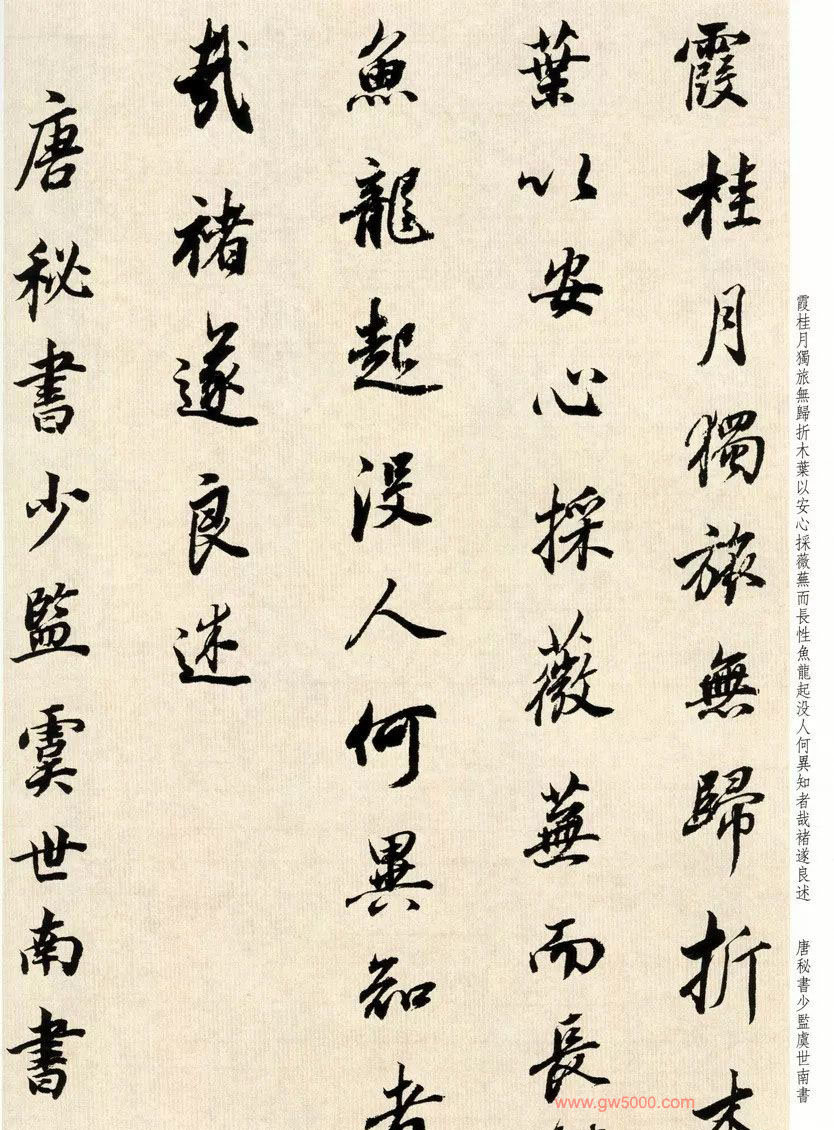 霞桂月獨旅無歸折木
葉以安心採薇蕪而長性
魚龍起没人何異知者
哉褚遂良述
唐秘書少監虞世南書
霞桂月獨旅無歸折木葉以安心採薇蕪而長性魚龍起没人何異知者哉褚遂良述 唐秘書少監虞世南書
www.gw5000.com